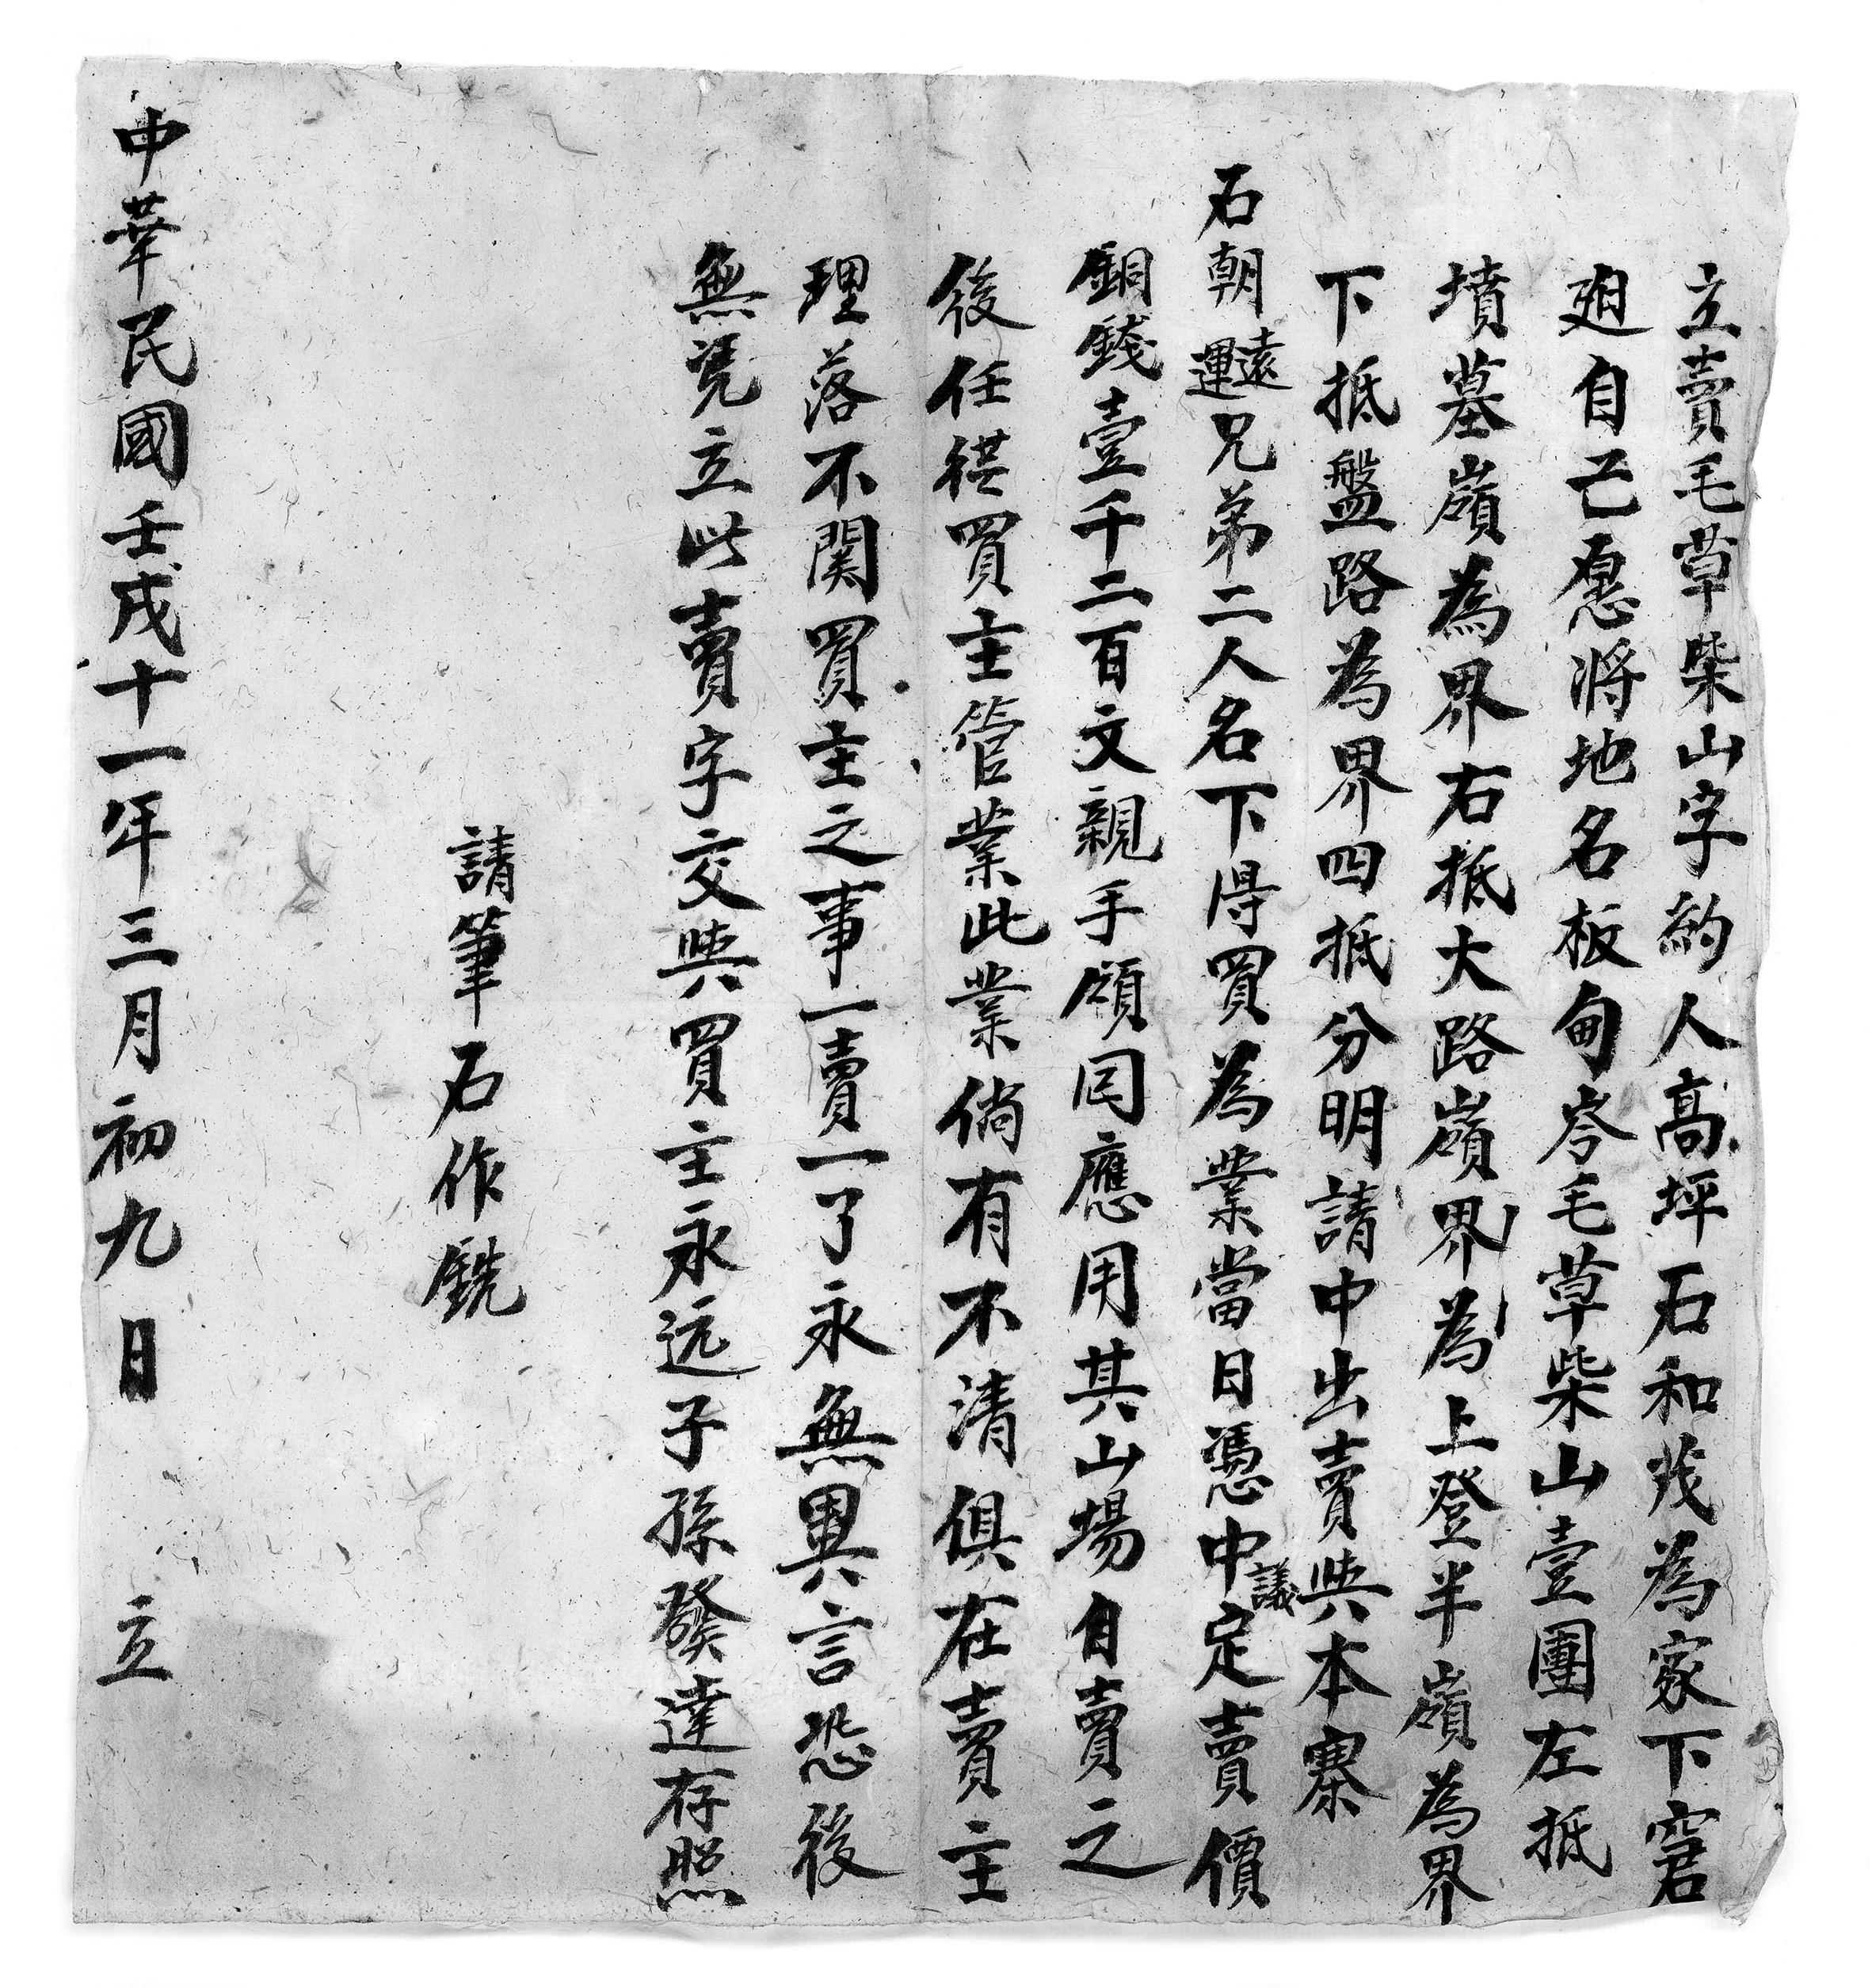 立賣毛草柴山字約人高坪石和茂為家下窘
廹自己愿将地名板甸岑毛草柴山壹團左抵
墳墓嶺為界右抵大路嶺界為上登半嶺為界
下抵盤路為界四抵分明請中出賣與本寨
石朝遠運兄弟二人名下得買為業當日憑中議定賣價
銅錢壹千二百文親手領囘應用其山場自賣之
後任從買主管業此業倘有不清俱在賣主
理落不関買主之事一賣一了永無異言恐後
無凭立此賣字交與買主永远子孫發達存照
請筆石作銑
中華民國壬戌十一年三月初九日 立